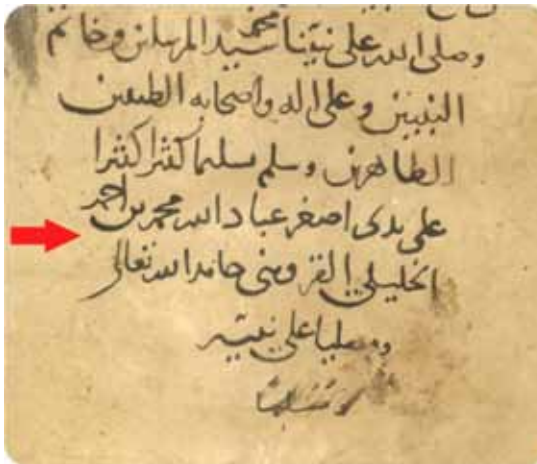 وصلى الله على نبينا محمد سيد المرسلين وخاتم
النبيين وعلى اله واصحابه الطيبين
الطاهرين وسلم تسليما كثيرا كثيرا
على يدى اصغر عباد الله محمد بن احمد
الخليلي القزويني حامدا لله تعالى
ومصليا على نبيه
ومسلما